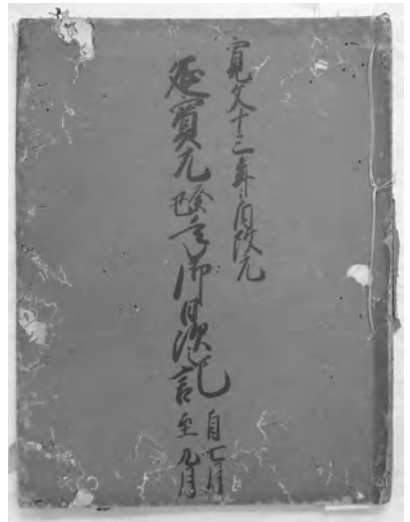 寛文十三年有改元
延寳元癸丑年御日次記
自七月
至九月